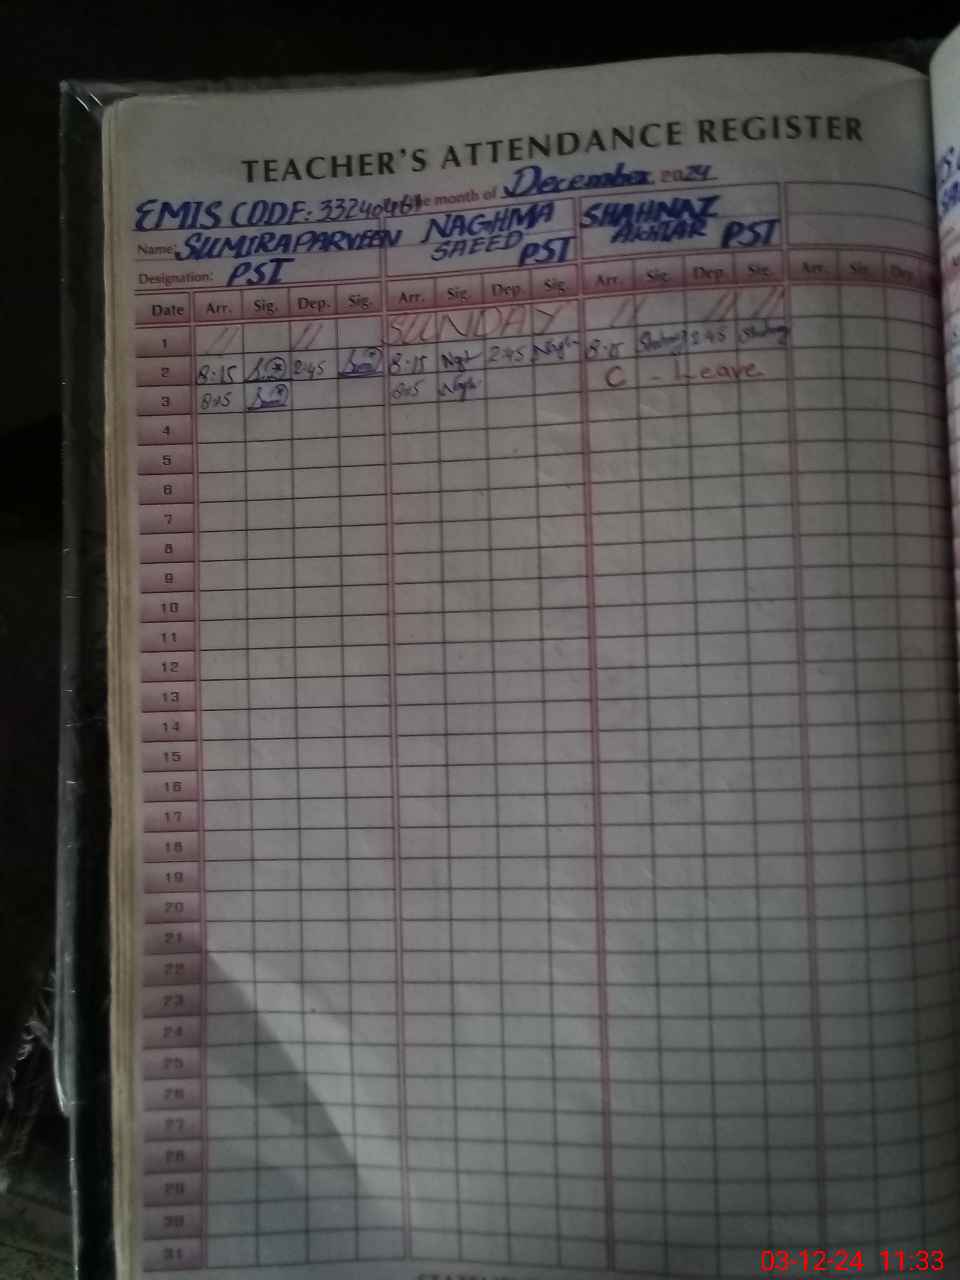 TEACHER'S ATTENDANCE REGISTER
EMIS CODE: 33240461 e month of December 2024
Name: SUMIRA PARVEEN NAGHMA SAEED PST SHAHNAZ AKHTAR PST
Designation: PST
Date Arr. Sig. Dep. Sig. Arr. Sig. Dep. Sig. Arr. Sig. Dep. Sig. Arr. Sig. Dep.
1 // // SUNDAY // // //
2 8:15 2:45 8:15 2:45 8:15 2:45
3 8:15 8:15 C - Leave
4
5
6
7
8
9
10
11
12
13
14
15
16
17
18
19
20
21
22
23
24
25
26
27
28
29
30
31
03-12-24 11:33